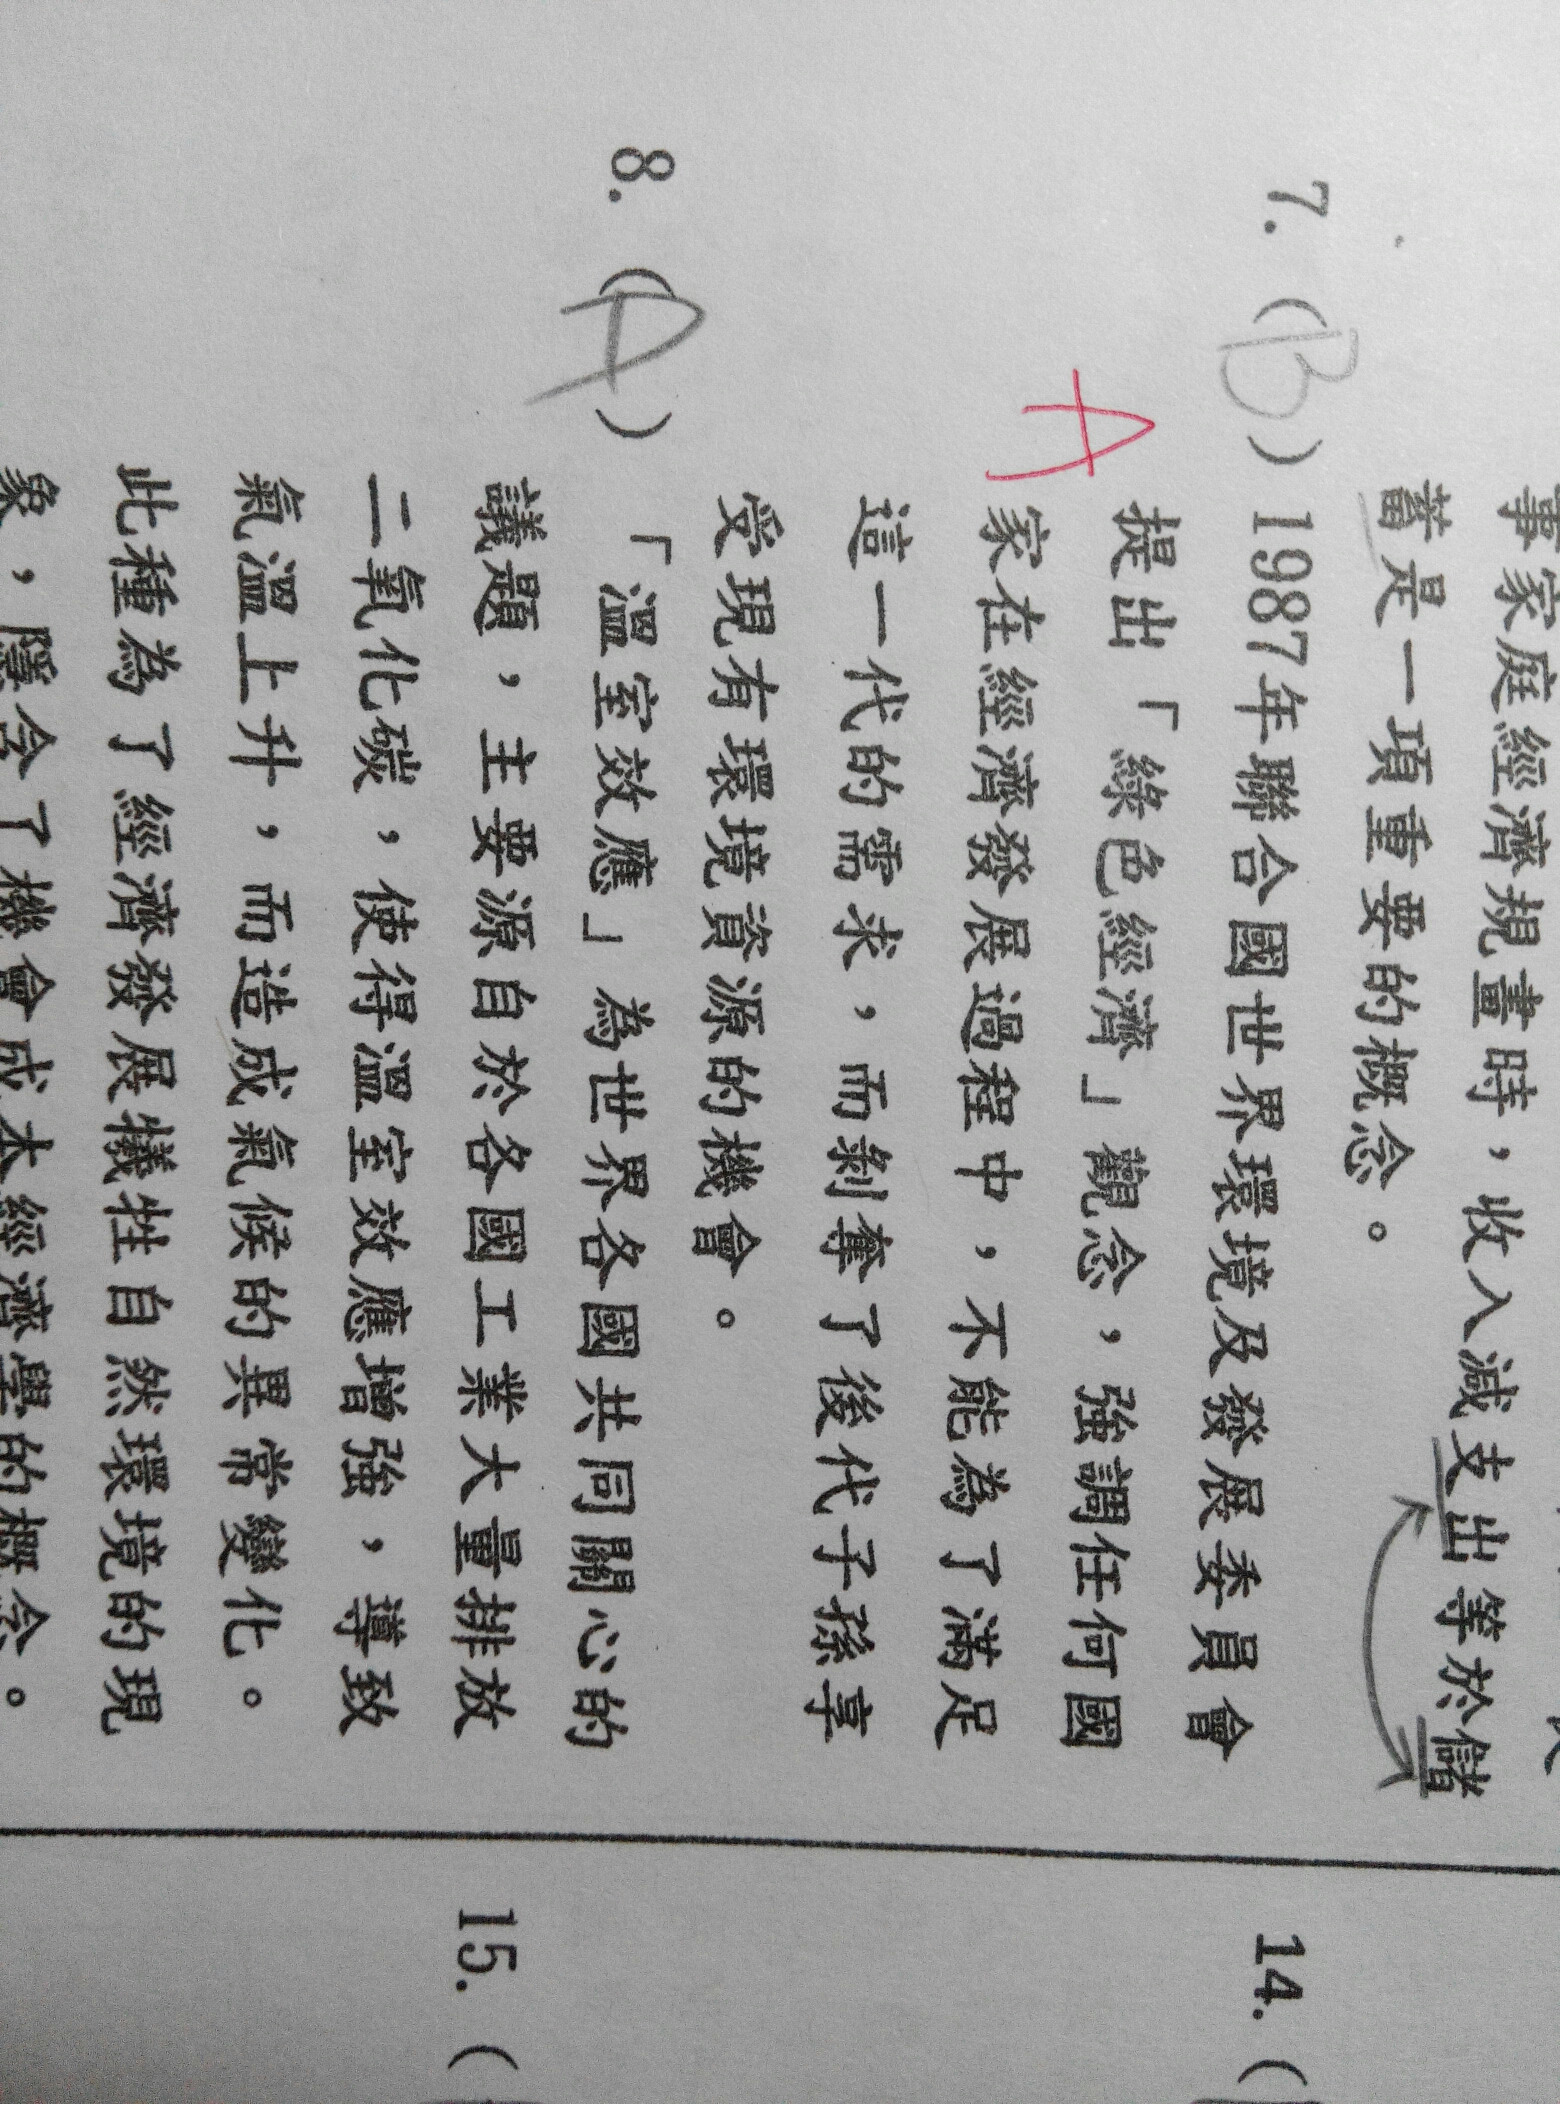 事家庭經濟規畫時，收入減支出等於儲
蓄是一項重要的概念。
7. (B) 1987年聯合國世界環境及發展委員會
提出「綠色經濟」觀念，強調任何國
A
家在經濟發展過程中，不能為了滿足
這一代的需求，而剝奪了後代子孫享
受現有環境資源的機會。
8. (A) 「溫室效應」為世界各國共同關心的
議題，主要源自於各國工業大量排放
二氧化碳，使得溫室效應增強，導致
氣溫上升，而造成氣候的異常變化。
此種為了經濟發展犧牲自然環境的現
象，隱含了機會成本經濟學的概念。
14. (
15. (